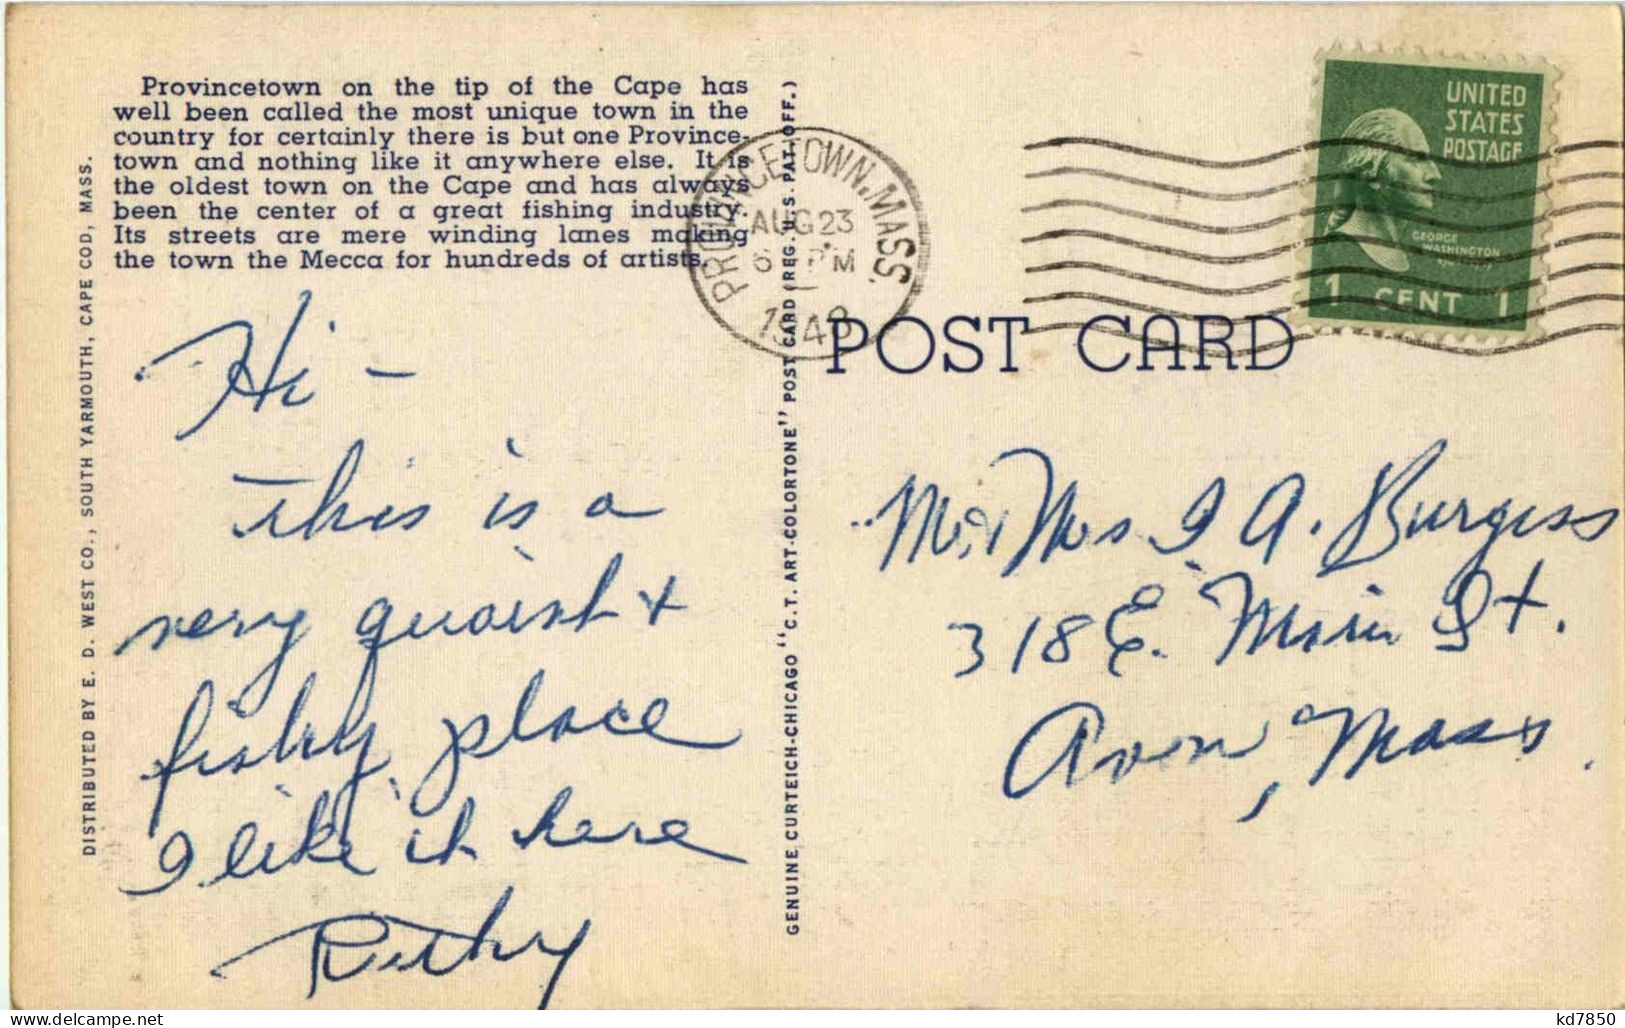 Provincetown on the tip of the Cape has
well been called the most unique town in the
country for certainly there is but one Province-
town and nothing like it anywhere else. It is
the oldest town on the Cape and has always
been the center of a great fishing industry.
Its streets are mere winding lanes making
the town the Mecca for hundreds of artists.
DISTRIBUTED BY E. D. WEST CO., SOUTH YARMOUTH, CAPE COD, MASS.
Hi -
this is a
very quaint +
fishy place
I like it here
Ruthy
GENUINE CURTEICH-CHICAGO "C.T. ART-COLORTONE" POST CARD (REG. U.S. PAT. OFF.)
PROVINCETOWN, MASS.
AUG 23
PM
1948
POST CARD
UNITED
STATES
POSTAGE
GEORGE
WASHINGTON
1 CENT 1
Mr + Mrs I A. Burgess
318 E. Main St.
Avon, Mass.
kd7850